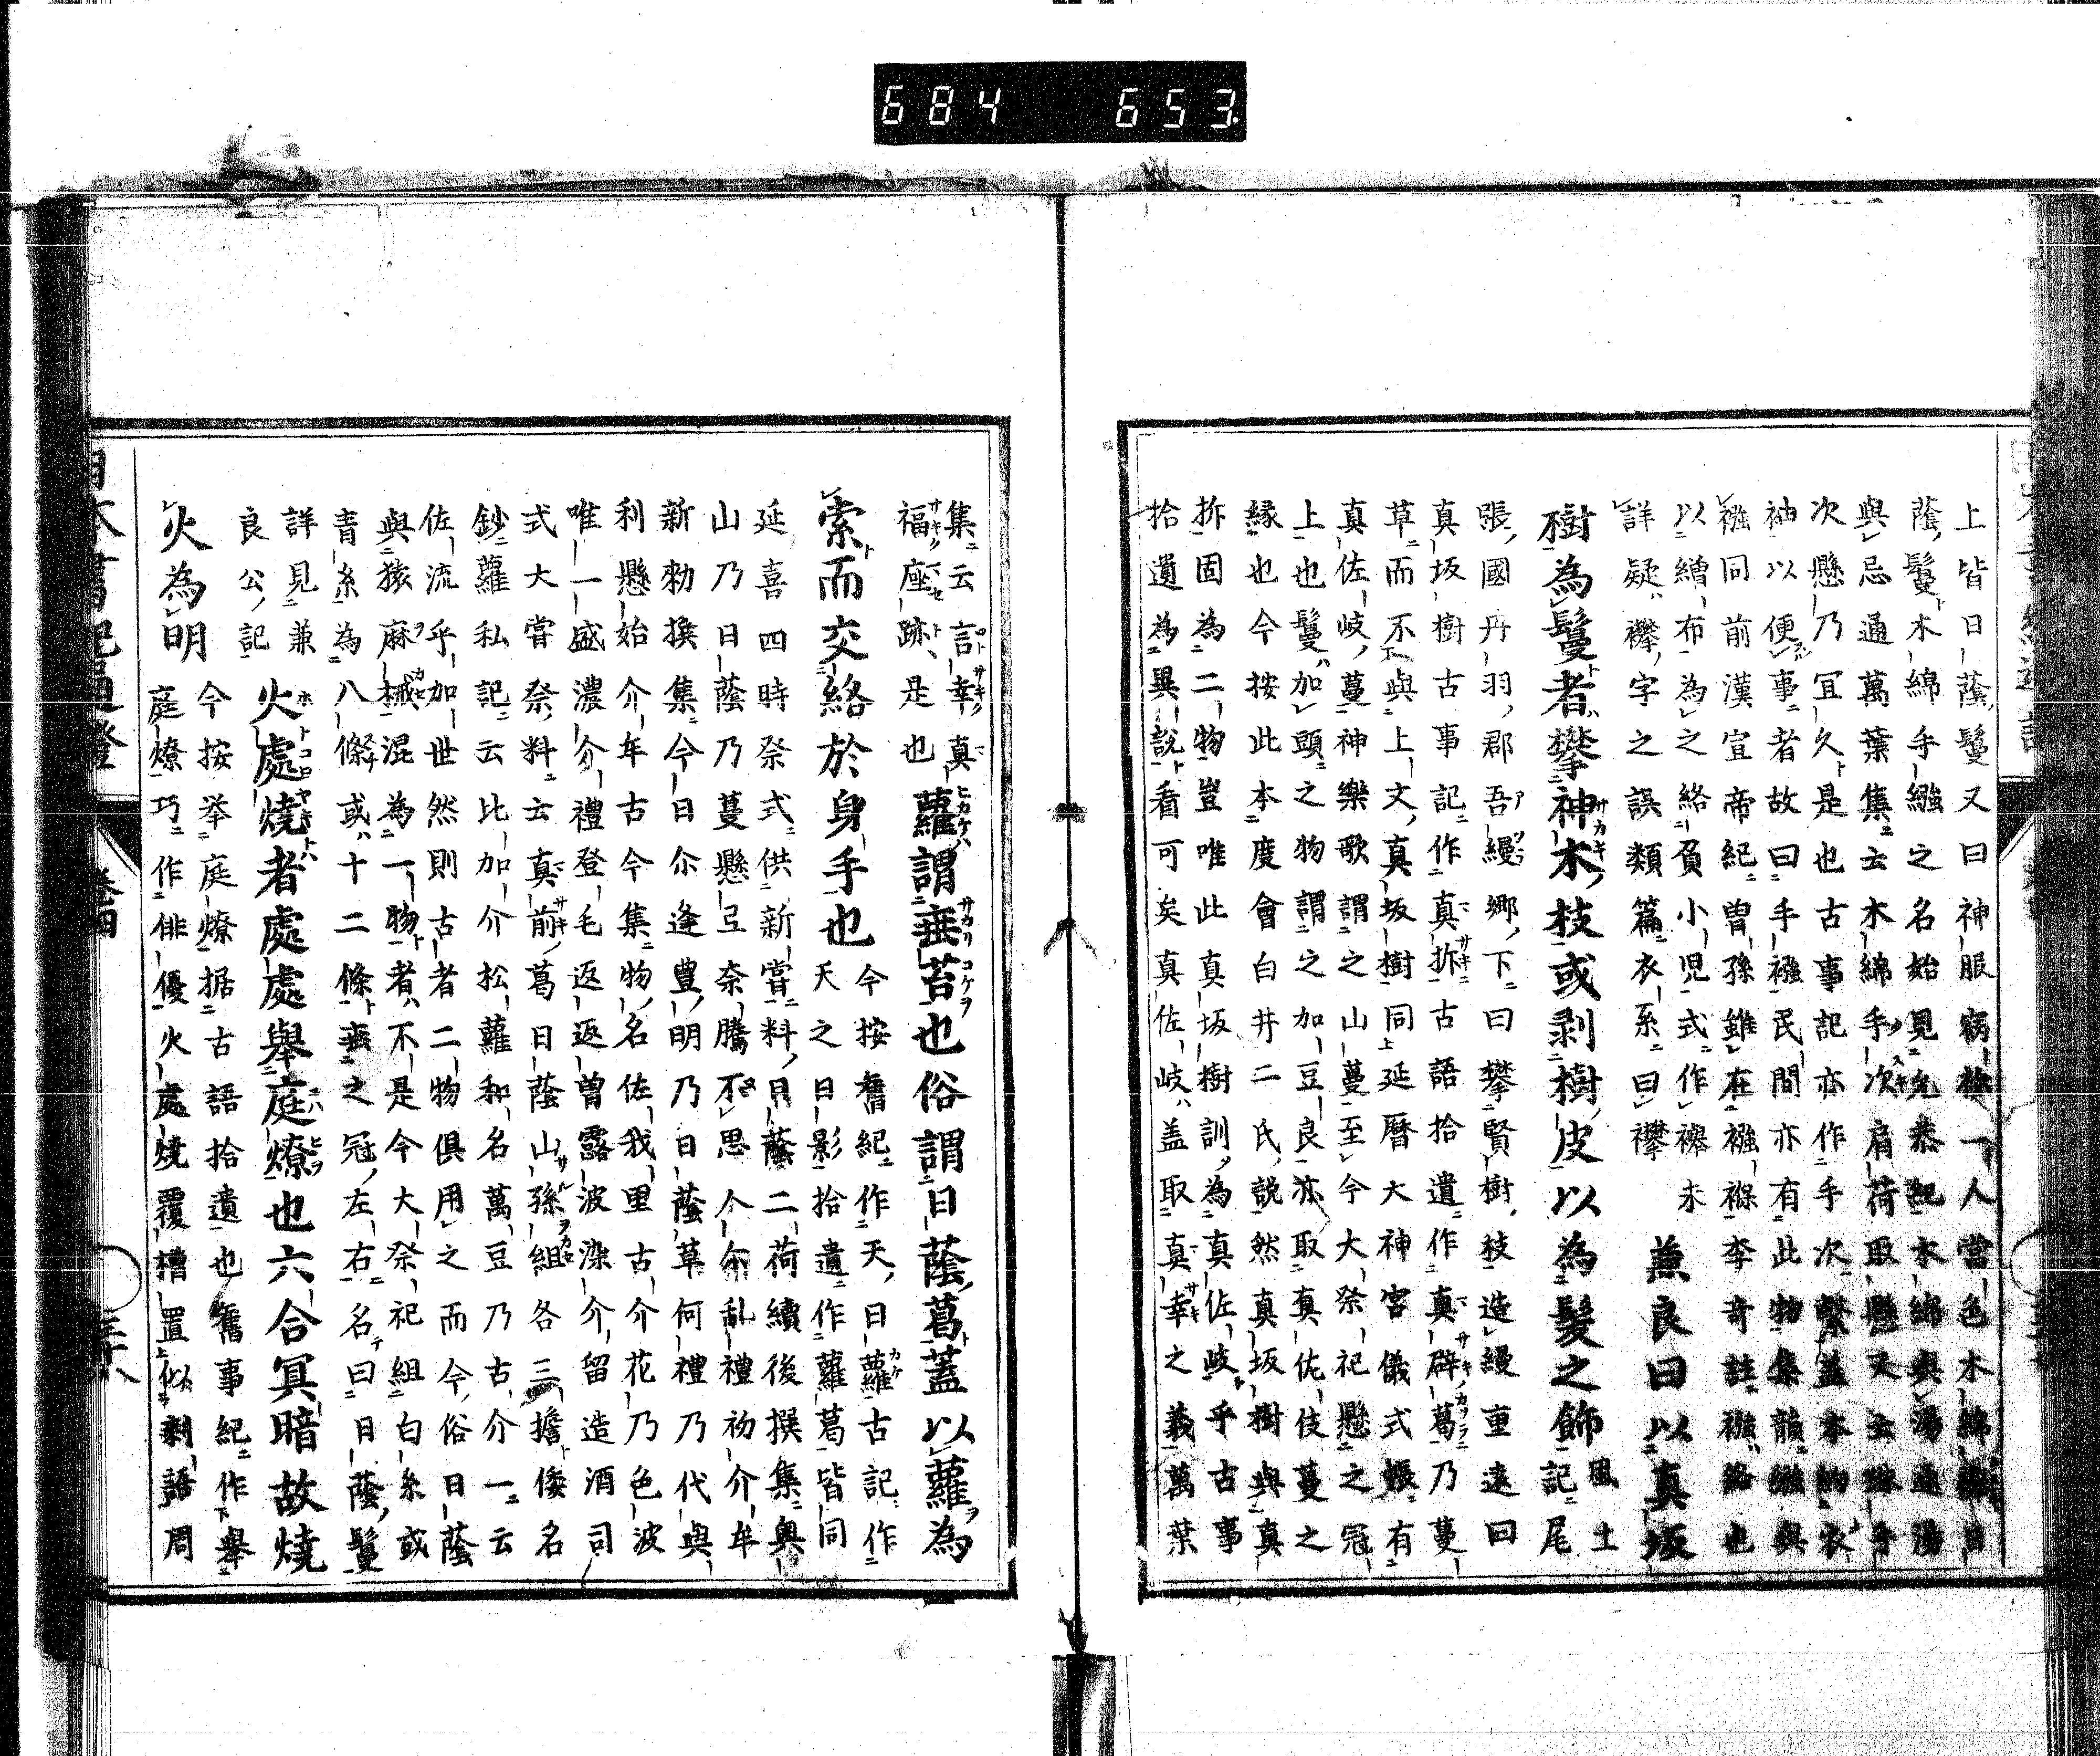 684 653
上皆日蔭鬘又曰神服病一人當色木綿
蔭鬘木綿手繦之名始見木綿與湯通湯
與忌通萬葉集云木綿手次肩荷取懸又云手
次懸乃冝久是也古事記亦作手次繫蓋本
袖以便事者故曰手襁民間亦有此物集韻繦與
襁同前漢宣帝紀曽孫雖在襁褓李奇註襁絡也
以繒布為之絡負小児式作襷未
詳疑襷字之誤類篇衣系曰襻 兼良曰以真坂
樹為鬘者攀神木枝或剥樹皮以為髮之飾風土
記尾
張國丹羽郡吾縵郷下曰攀賢樹枝造縵重遠曰
真坂樹古事記作真拆古語拾遺作真辟葛乃蔓
草而不與上文真坂樹同延暦大神宮儀式帳有
真佐岐蔓神樂歌謂之山蔓至今大祭祀懸之冠
上也鬘加頭之物謂之加豆良亦取真佐伎蔓之
縁也今按此本度會白井二氏説然真坂樹與真
拆固為二物豈唯此真坂樹訓為真佐岐乎古事
拾遺為異説看可矣真佐岐盖取真幸之義萬葉
集云言幸真
福座跡是也 蘿謂垂苔也俗謂日蔭葛蓋以蘿為
索而交絡於身手也 今按舊紀作天日蘿古記作
天之日影拾遺作蘿葛皆同
延喜四時祭式供新嘗料日蔭二荷續後撰集奥
山乃日蔭乃蔓懸弖奈騰不思介尓乱禮初介牟
新勅撰集今日尓逢豊明乃日蔭草何禮乃代與
利懸始介年古今集物名佐我里古介花乃色波
唯一盛濃介禮登毛返返曽露波染介留造酒司
式大嘗祭料云真前葛日蔭山孫組各三擔倭名
鈔蘿私記云比加介松蘿和名萬豆乃古介一云
佐流乎加世然則古者二物倶用之而今俗日蔭
與猿麻桛混為一物者不是今大祭祀組白糸或
青糸為八條或十二條垂之冠左右名曰日蔭鬘
詳見兼
良公記 火處燒者處處舉庭燎也六合冥暗故燒
火為明 今按举庭燎据古語拾遺也舊事紀作舉
庭燎巧作俳優火處燒覆槽置似剰語周